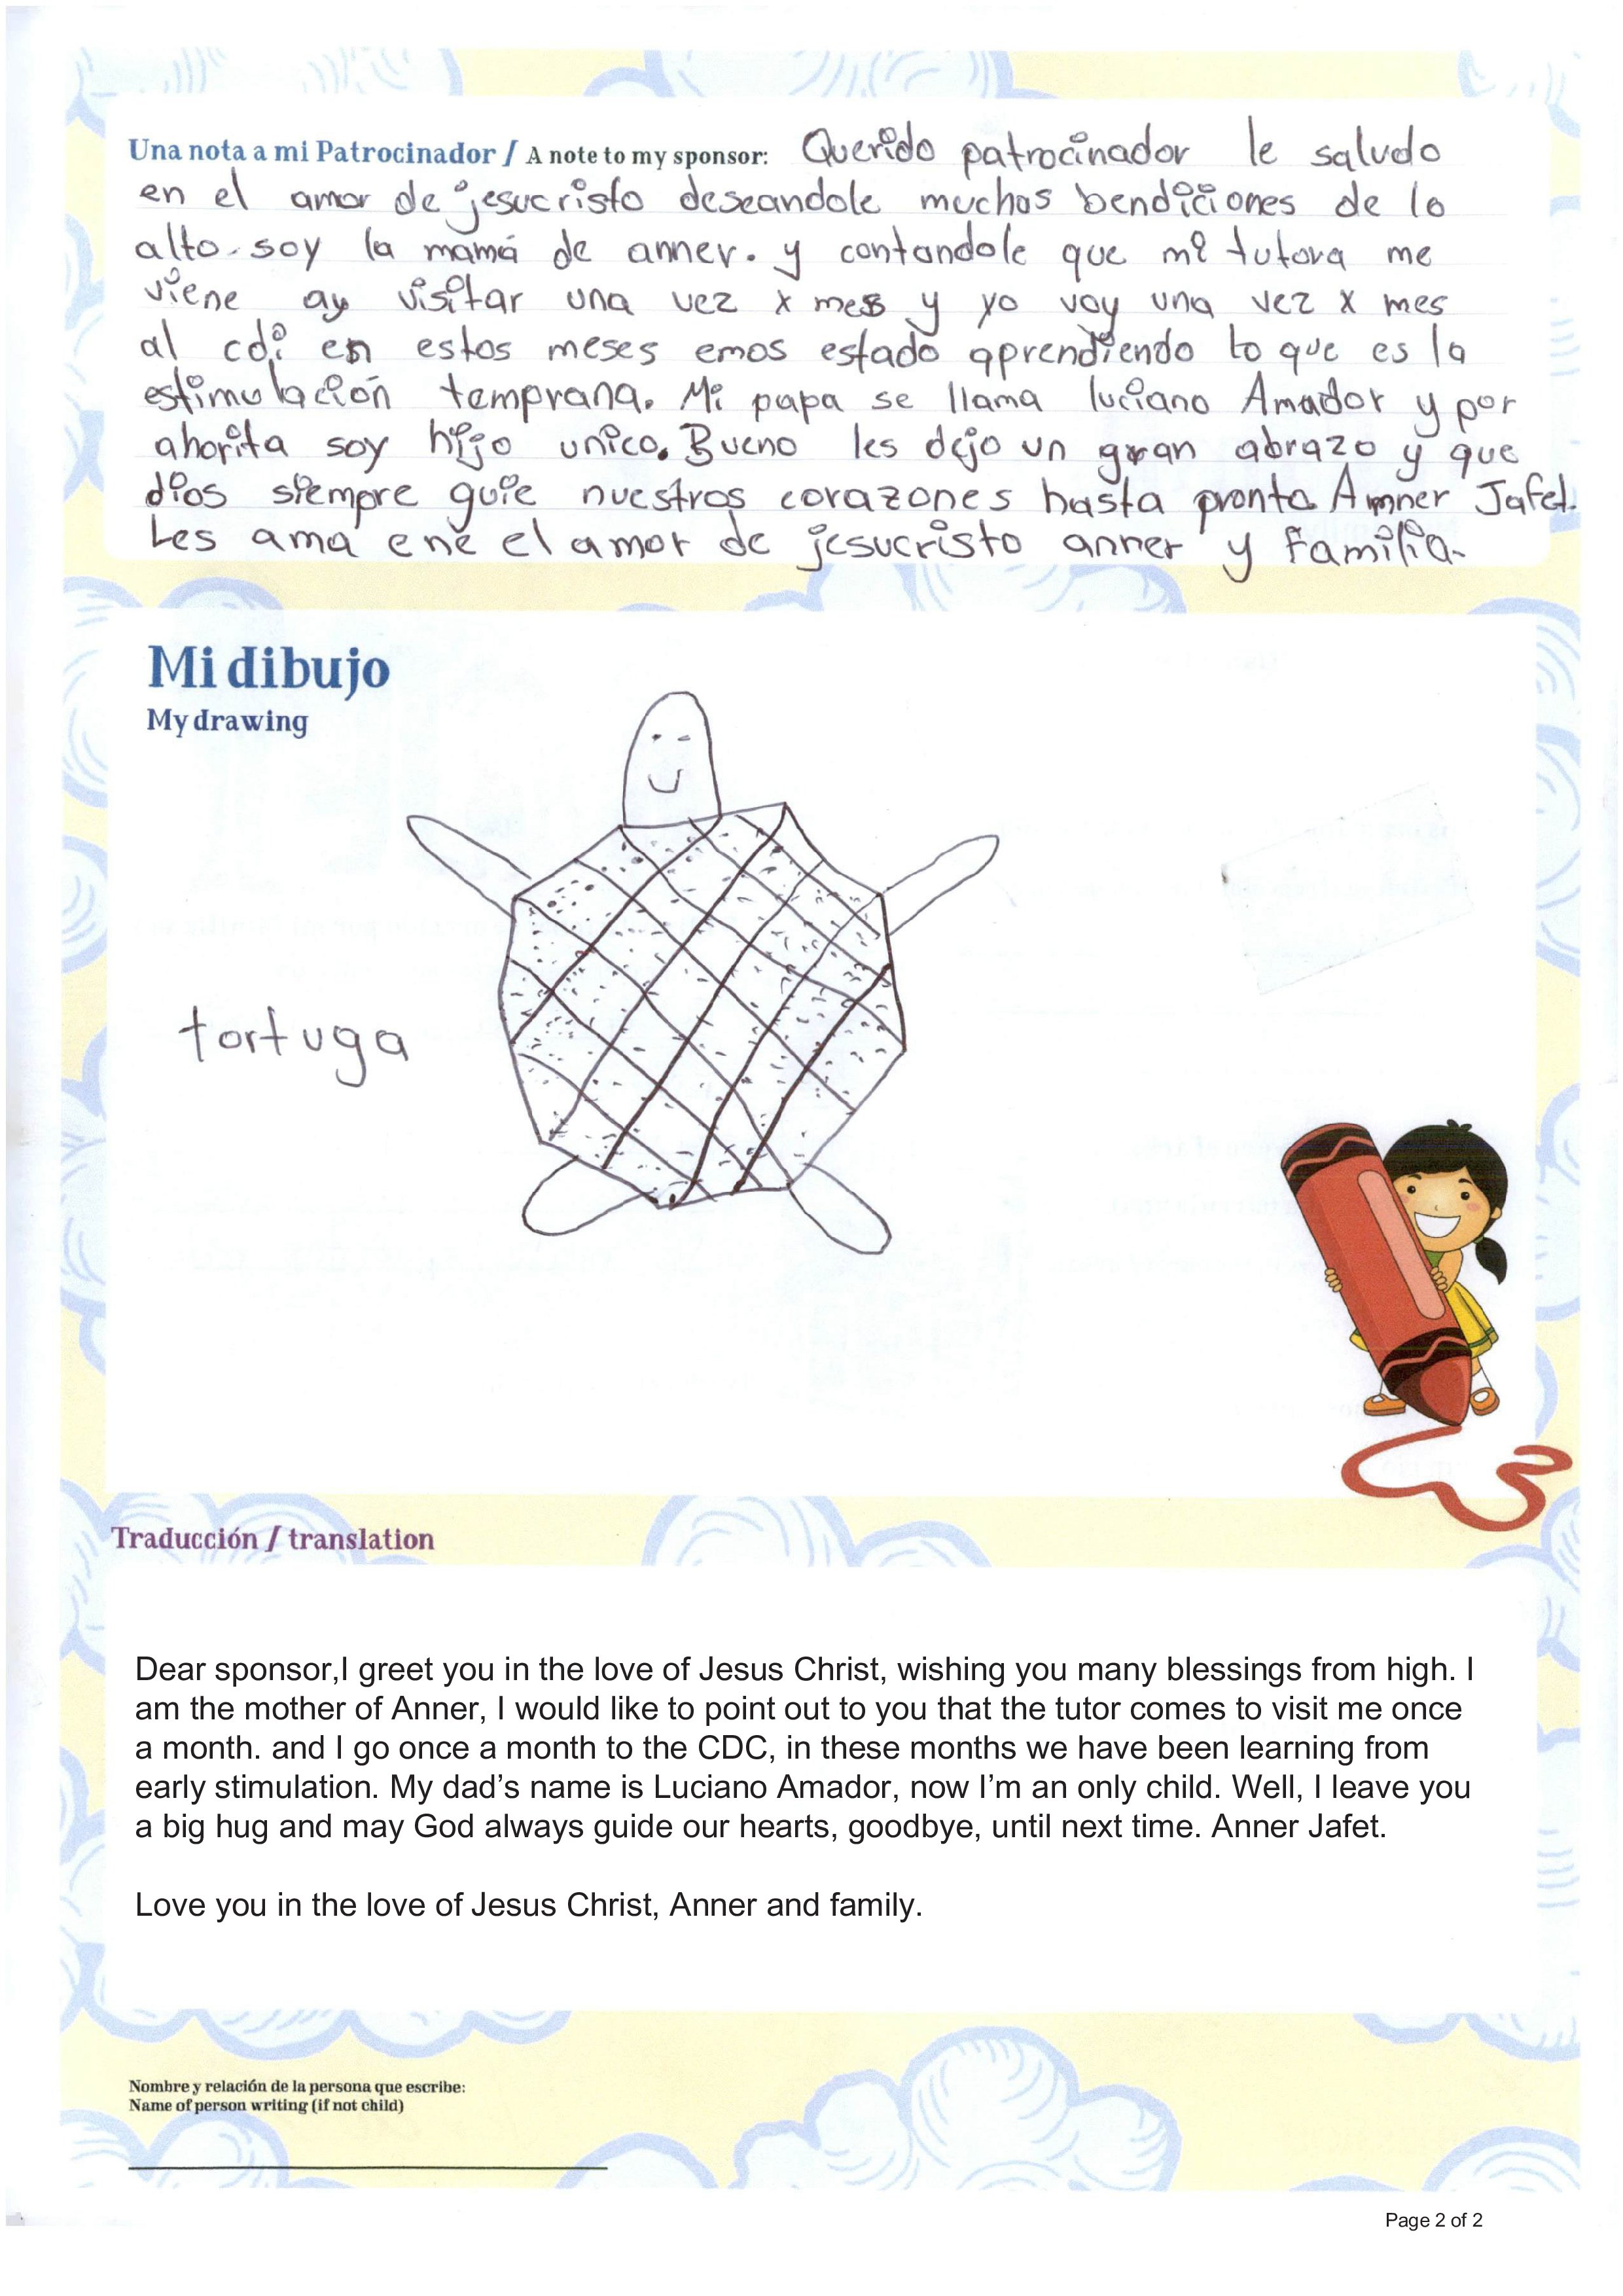 Una nota a mi Patrocinador / A note to my sponsor: Querido patrocinador le saludo
en el amor de jesucristo deseandole muchas bendiciones de lo
alto. soy la mamá de anner. y contandole que mi tutora me
viene ay visitar una vez x mes y yo voy una vez x mes
al cdi en estos meses emos estado aprendiendo lo que es la
estimulación temprana. Mi papa se llama luciano Amador y por
ahorita soy hijo unico. Bueno les dejo un gran abrazo y que
dios siempre guie nuestros corazones hasta pronto Anner Jafet.
Les ama ene el amor de jesucristo anner y familia.
Mi dibujo
My drawing
tortuga
Traducción / translation
Dear sponsor,I greet you in the love of Jesus Christ, wishing you many blessings from high. I
am the mother of Anner, I would like to point out to you that the tutor comes to visit me once
a month. and I go once a month to the CDC, in these months we have been learning from
early stimulation. My dad’s name is Luciano Amador, now I’m an only child. Well, I leave you
a big hug and may God always guide our hearts, goodbye, until next time. Anner Jafet.
Love you in the love of Jesus Christ, Anner and family.
Nombre y relación de la persona que escribe:
Name of person writing (if not child)
Page 2 of 2